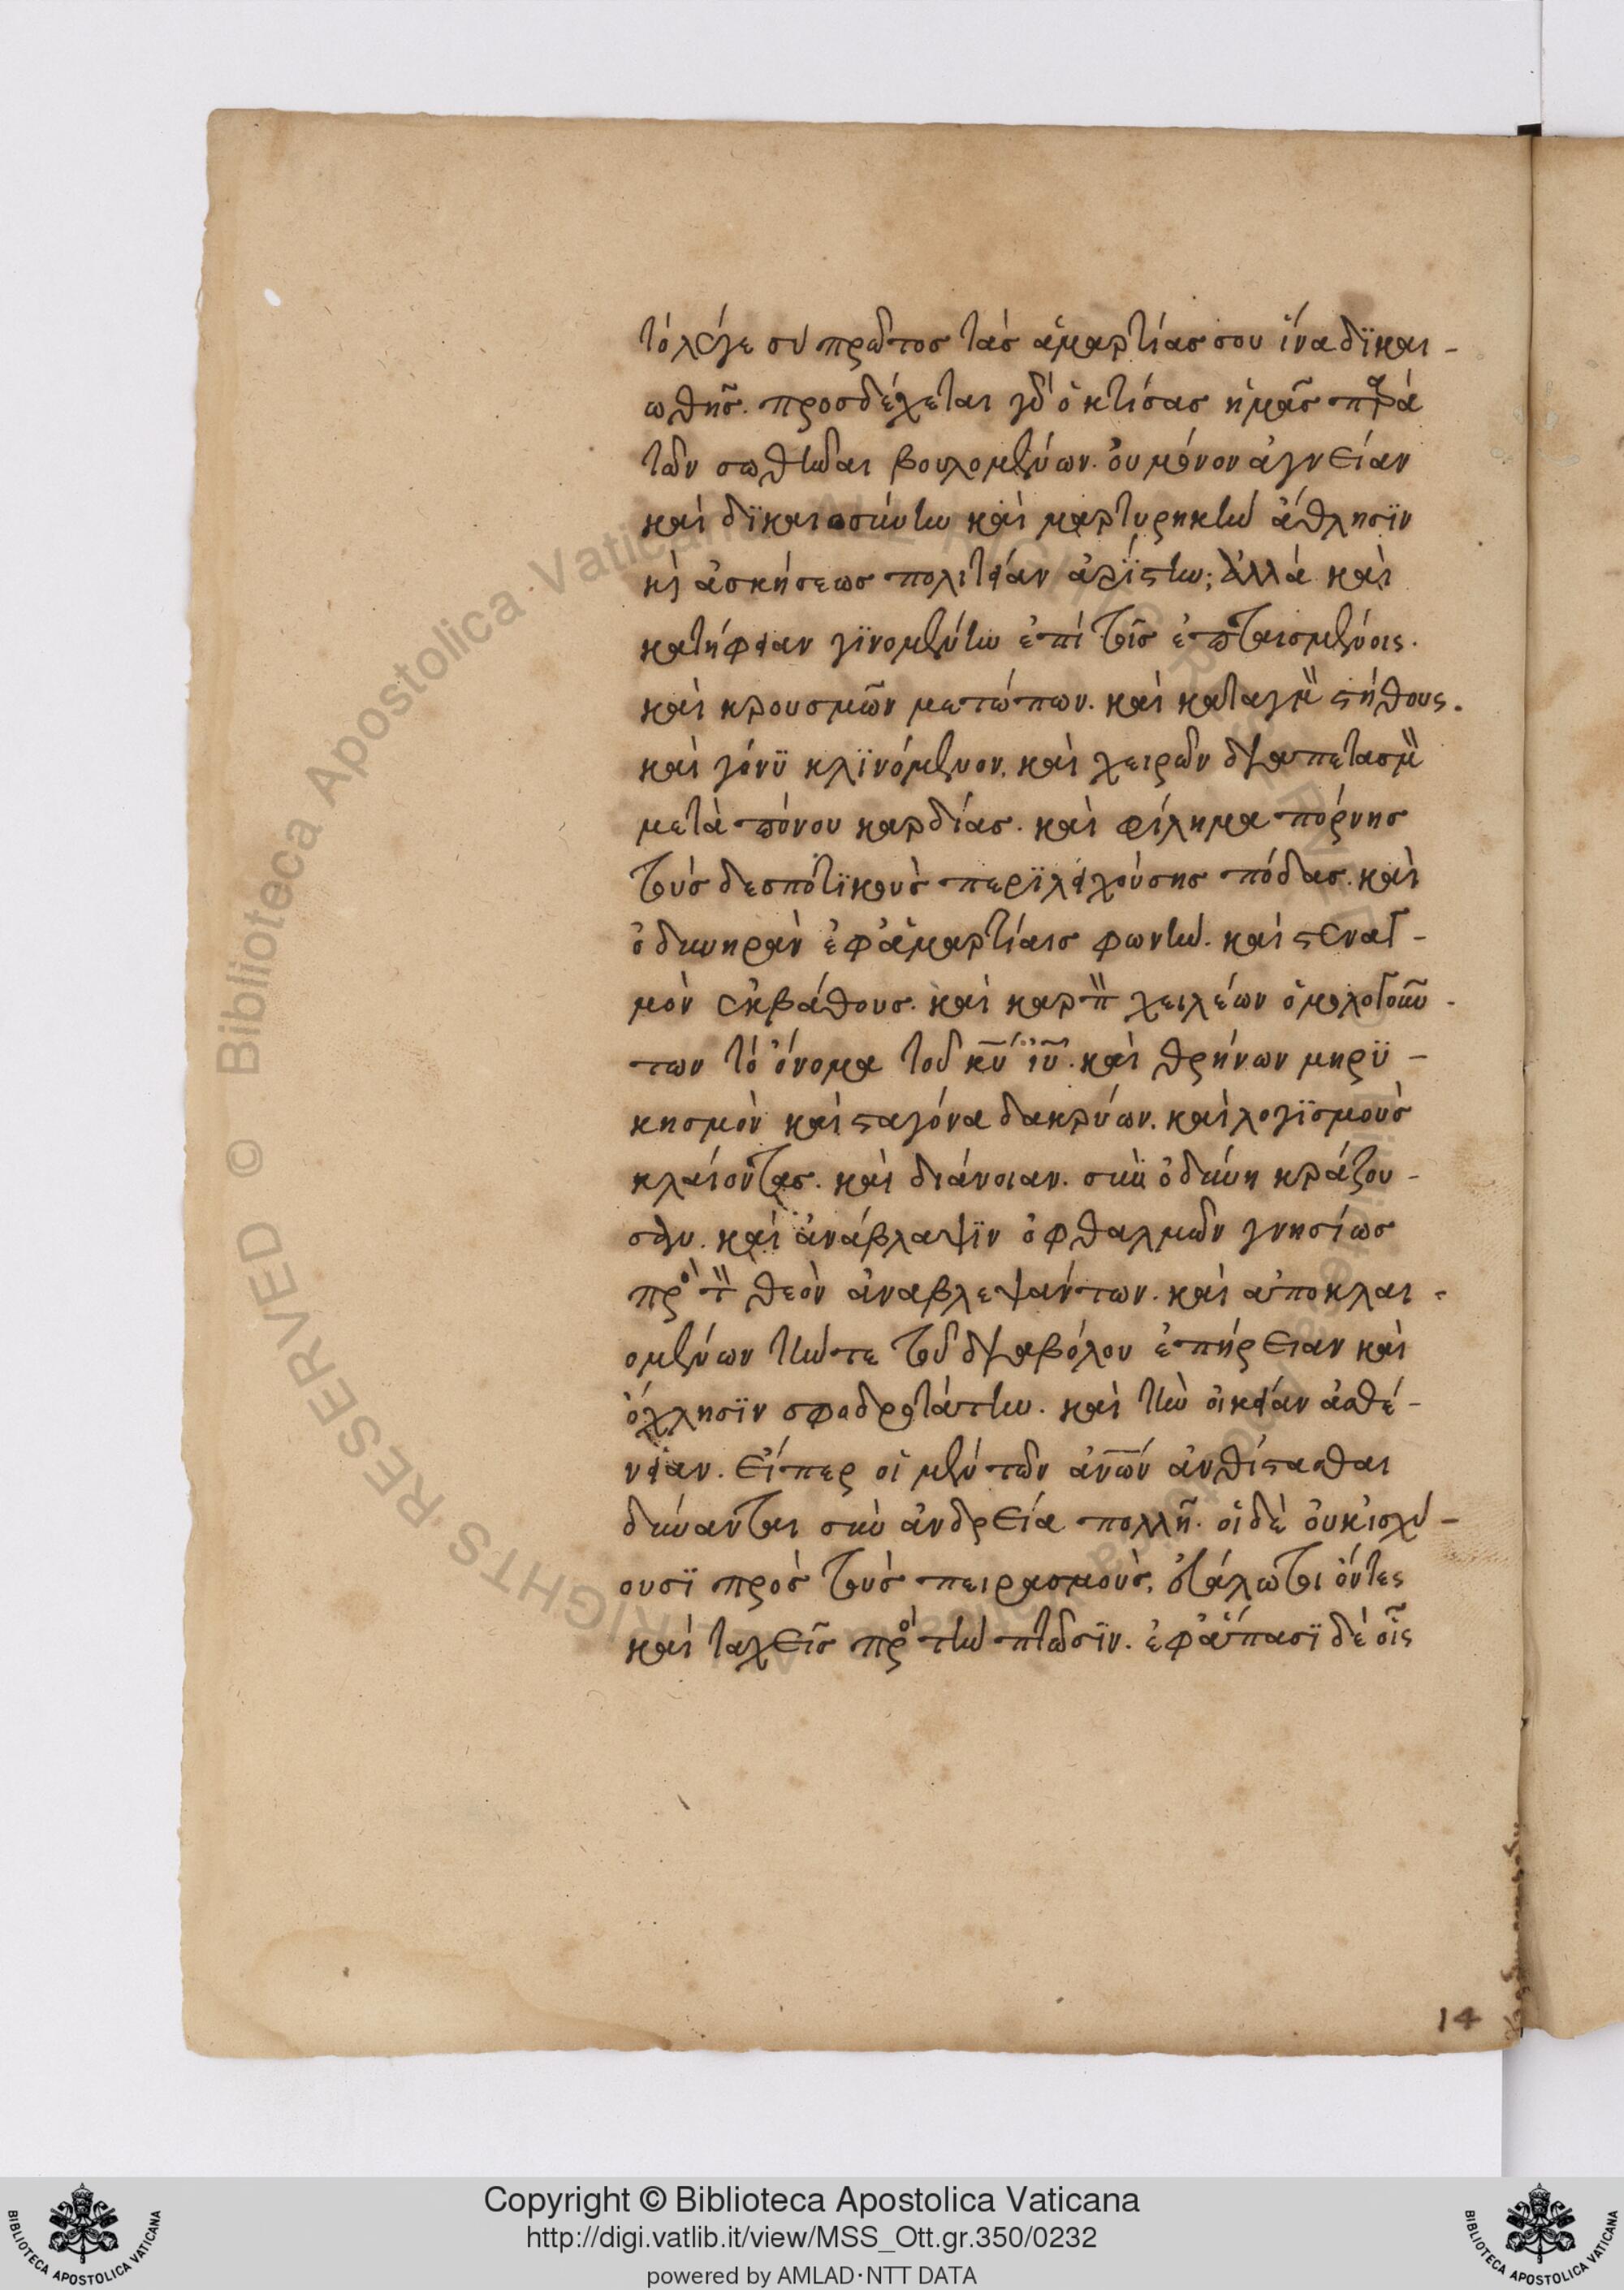 τὸ λέγε σὺ πρῶτος τὰς ἁμαρτίας σου ἵνα δϊκαι-
ωθῇς. προσδέχεται γὰρ ὁ κτίσας ἡμᾶς παρὰ
τῶν σωθῆναι βουλομένων. οὐ μόνον ἁγνείαν
καὶ δϊκαιοσύνην καὶ μαρτυρικὴν ἄθλησϊν
κ(αὶ) ἀσκήσεως πολιτείαν ἀρΐστην; ἀλλὰ καὶ
κατήφειαν γϊνομένην ἐπὶ τοῖς ἐπταισμένοις.
καὶ κρουσμῶν μετώπων. καὶ καταγμ(ὸν) στήθους.
καὶ γόνϋ κλϊνόμενον. καὶ χειρῶν διαπετασμ(ὸν)
μετὰ πόνου καρδίας. καὶ φίλημα πόρνης
τοὺς δεσποτϊκοὺς περϊλειχούσης πόδας. καὶ
ὀδυνηρὰν ἐφ' ἁμαρτίαις φωνήν. καὶ στεναγ-
μὸν ἐκ βάθους. καὶ καρπ(ὸν) χειλέων ὁμολογούν-
των τὸ ὄνομα τοῦ κ̅υ̅ ι̅υ̅. καὶ θρήνων μηρϋ-
κησμὸν καὶ σταγόνα δακρύων. καὶ λογϊσμοὺς
κλαίοντας. καὶ διάνοιαν. σὺν ὀδύνη κράζου-
σαν. καὶ ἀνάβλεψϊν ὀφθαλμῶν γνησίως
πρὸ(ς) τ(ὸν) θεὸν ἀναβλεψάντων. καὶ ἀποκλαι-
ομένων τήν τε τοῦ διαβόλου ἐπήρειαν καὶ
ὄχλησϊν σφοδροτάτην. καὶ τὴν οἰκείαν ἀσθέ-
νειαν. εἴπερ οἱ μὲν τῶν ἀ̅ν̅ω̅ν̅ ἀνθίστασθαι
δύνανται σὺν ἀνδρεία πολλῆ. οἱ δὲ οὐκ ἰσχύ-
ουσϊ πρὸς τοὺς πειρασμούς, εὐάλωτοι ὄντες
καὶ ταχεῖς πρὸ(ς) τὴν πτῶσϊν. ἐφ' ἅπασϊ δὲ οἷς
14
Copyright © Biblioteca Apostolica Vaticana
http://digi.vatlib.it/view/MSS_Ott.gr.350/0232
powered by AMLAD·NTT DATA
BIBLIOTECA APOSTOLICA VATICANA
BIBLIOTECA APOSTOLICA VATICANA